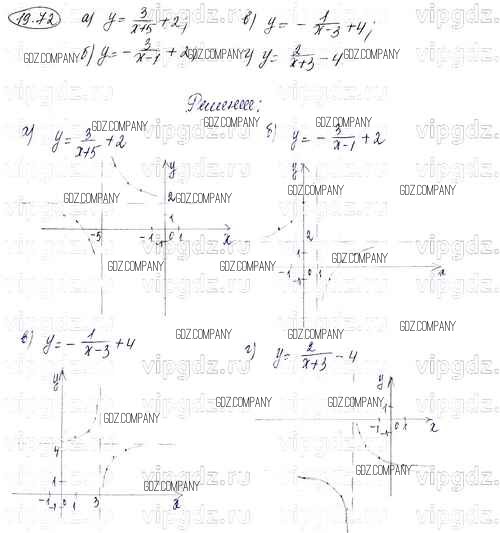 19.72 а) y = 3/(x+5) + 2; в) y = - 1/(x-3) + 4;
б) y = - 3/(x-1) + 2; г) y = 2/(x+3) - 4
Решение:
а) y = 3/(x+5) + 2 б) y = - 3/(x-1) + 2
y
2
1
-5 -1 0 1 x
y
2
1
-1 0 1 x
-1
в) y = - 1/(x-3) + 4 г) y = 2/(x+3) - 4
y
4
1
-1 0 1 3 x
-1
y
1
-1 0 1 x
-1
GDZ.COMPANY
vipgdz.ru